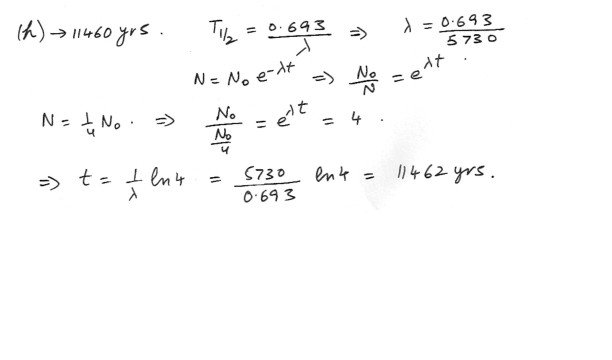 (h) → 11460 yrs. T1/2 = 0.693/λ ⇒ λ = 0.693/5730
N = N₀ e^-λt ⇒ N₀/N = e^λt.
N = 1/4 N₀. ⇒ N₀/(N₀/4) = e^λt = 4.
⇒ t = 1/λ ln 4 = 5730/0.693 ln 4 = 11462 yrs.